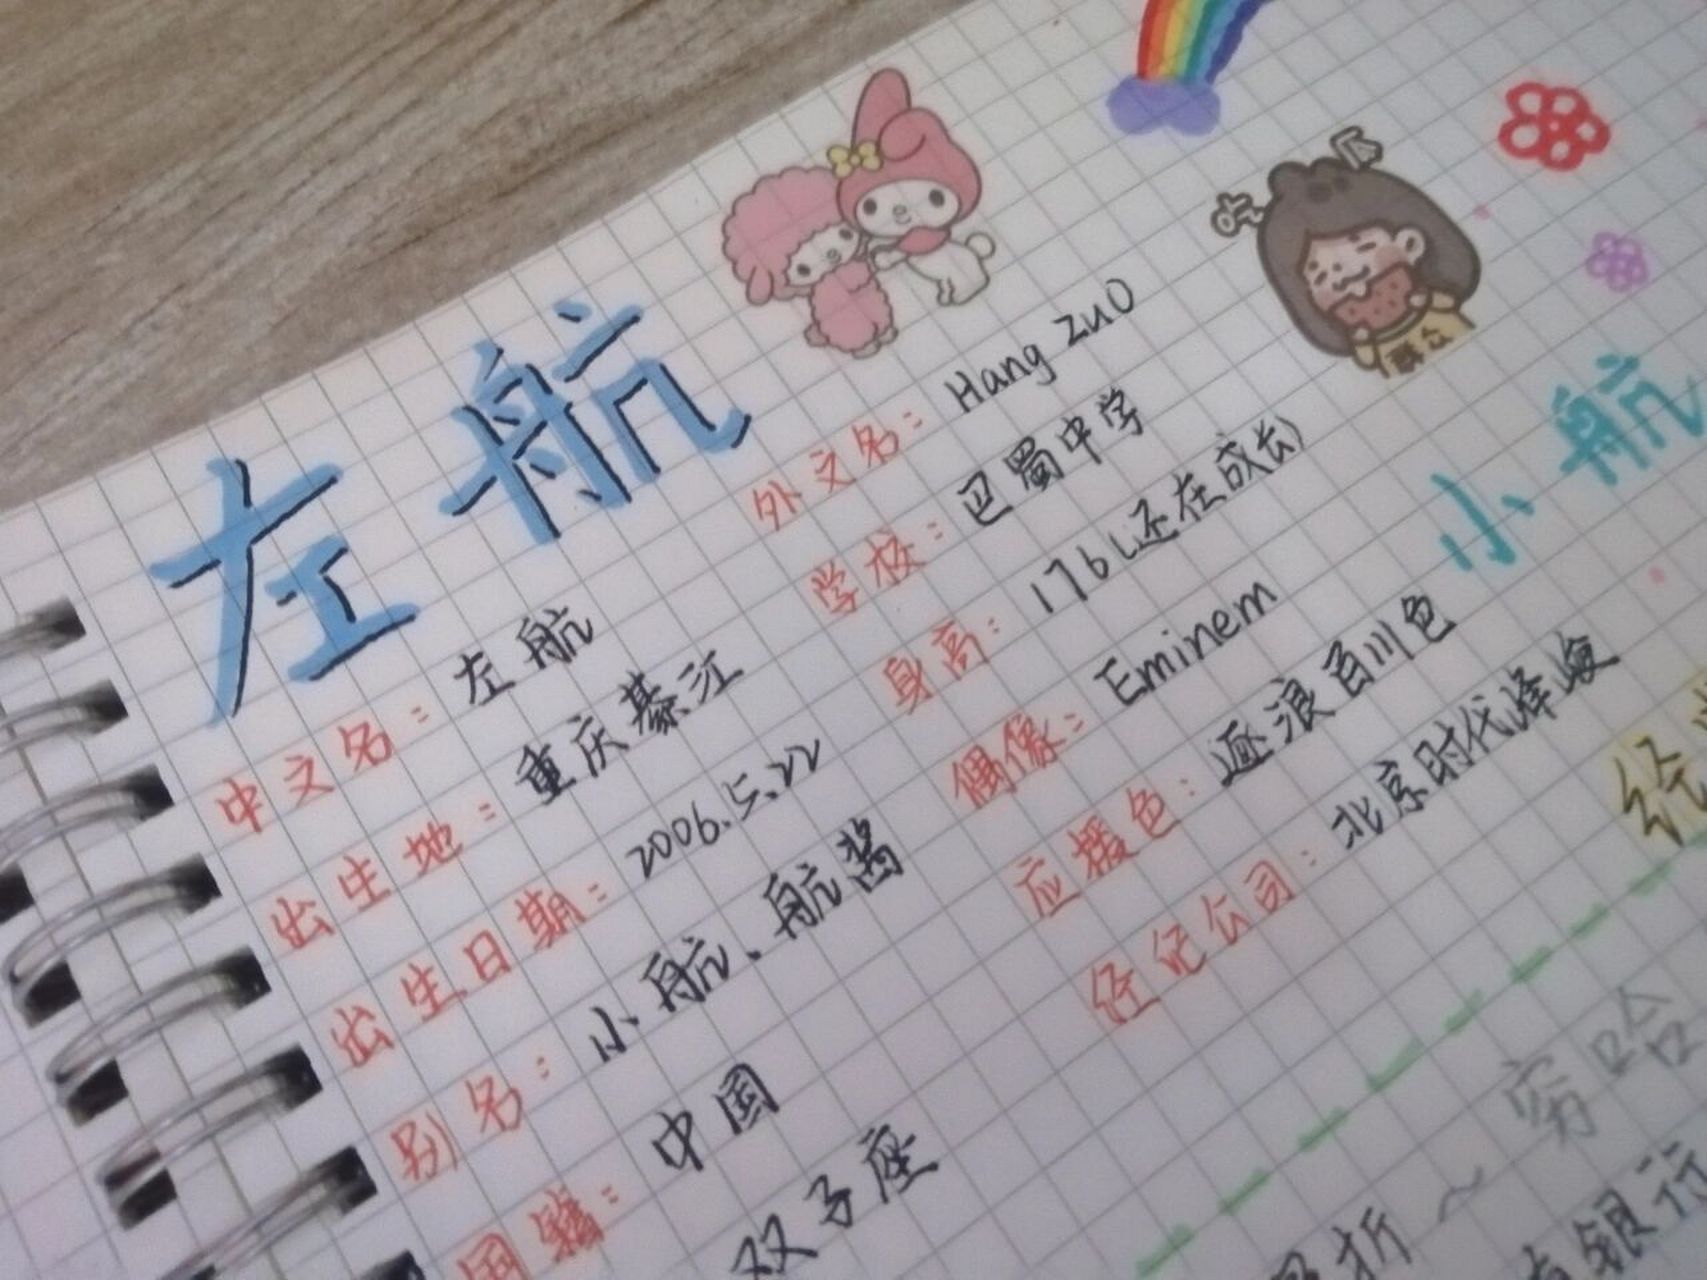 左航
中文名：左航
出生地：重庆綦江
出生日期：2006.5.22
别名：小航、航酱
国籍：中国
双子座
外文名：Hang Zuo
学校：巴蜀中学
身高：176(还在成长)
偶像：Eminem
应援色：逐浪百川色
经纪公司：北京时代峰峻
吃瓜
群众
小航
经
穷哈
折～
银行